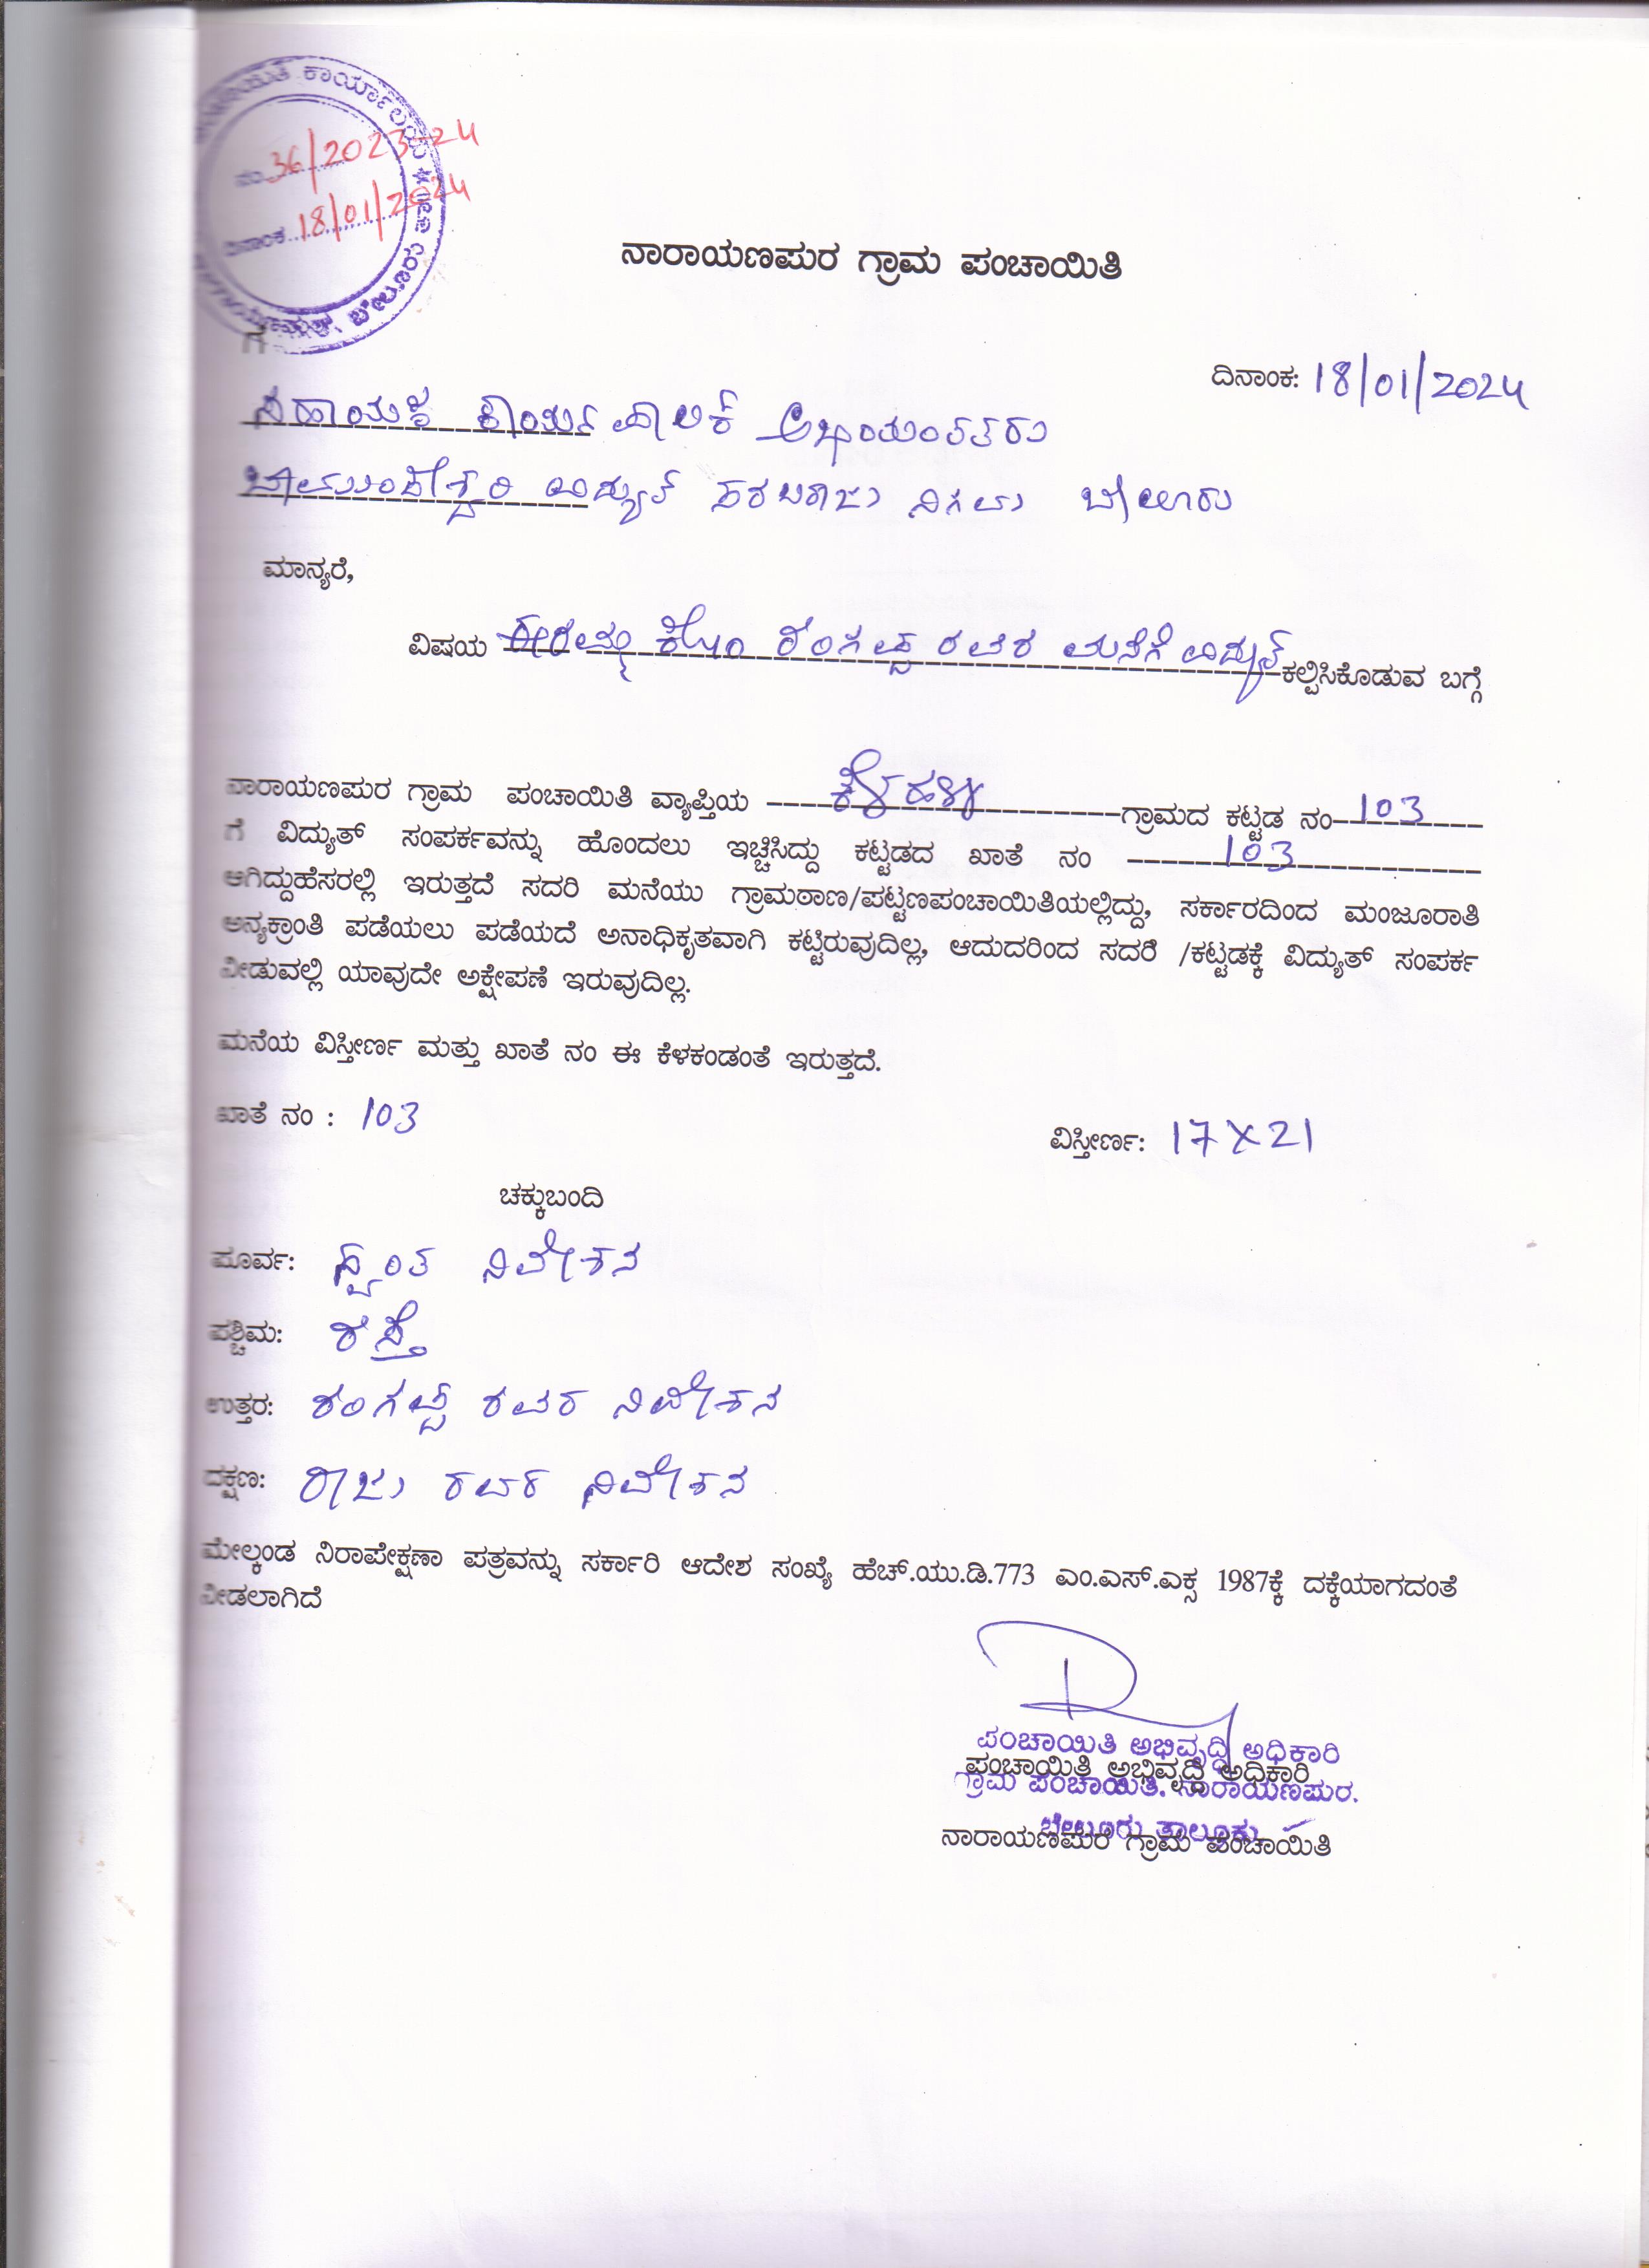 ಕಾರ್ಯಾಲಯ ★
ನಂ. 36/2023-24
ದಿನಾಂಕ 18/01/2024
ಬೇಲೂರು ತಾ||
ನಾರಾಯಣಪುರ ಗ್ರಾಮ ಪಂಚಾಯಿತಿ
ಗೆ
ದಿನಾಂಕ: 18/01/2024
ಸಹಾಯಕ ಕಾರ್ಯಪಾಲಕ ಅಭಿಯಂತರರು
ಚಾಮುಂಡೇಶ್ವರಿ ವಿದ್ಯುತ್ ಸರಬರಾಜು ನಿಗಮ ಬೇಲೂರು
ಮಾನ್ಯರೆ,
ವಿಷಯ ಕೋಂ ರಂಗಪ್ಪ ರವರ ಮನೆಗೆ ವಿದ್ಯುತ್ ಕಲ್ಪಿಸಿಕೊಡುವ ಬಗ್ಗೆ
ನಾರಾಯಣಪುರ ಗ್ರಾಮ ಪಂಚಾಯಿತಿ ವ್ಯಾಪ್ತಿಯ ಗ್ರಾಮದ ಕಟ್ಟಡ ನಂ 103
ಗೆ ವಿದ್ಯುತ್ ಸಂಪರ್ಕವನ್ನು ಹೊಂದಲು ಇಚ್ಚಿಸಿದ್ದು ಕಟ್ಟಡದ ಖಾತೆ ನಂ 103
ಆಗಿದ್ದುಹೆಸರಲ್ಲಿ ಇರುತ್ತದೆ ಸದರಿ ಮನೆಯು ಗ್ರಾಮಠಾಣ/ಪಟ್ಟಣಪಂಚಾಯಿತಿಯಲ್ಲಿದ್ದು, ಸರ್ಕಾರದಿಂದ ಮಂಜೂರಾತಿ
ಅನ್ಯಕ್ರಾಂತಿ ಪಡೆಯಲು ಪಡೆಯದೆ ಅನಾಧಿಕೃತವಾಗಿ ಕಟ್ಟಿರುವುದಿಲ್ಲ, ಆದುದರಿಂದ ಸದರಿ /ಕಟ್ಟಡಕ್ಕೆ ವಿದ್ಯುತ್ ಸಂಪರ್ಕ
ನೀಡುವಲ್ಲಿ ಯಾವುದೇ ಅಕ್ಷೇಪಣೆ ಇರುವುದಿಲ್ಲ.
ಮನೆಯ ವಿಸ್ತೀರ್ಣ ಮತ್ತು ಖಾತೆ ನಂ ಈ ಕೆಳಕಂಡಂತೆ ಇರುತ್ತದೆ.
ಖಾತೆ ನಂ : 103
ವಿಸ್ತೀರ್ಣ: 17X21
ಚಕ್ಕುಬಂದಿ
ಪೂರ್ವ: ಸ್ವಂತ ನಿವೇಶನ
ಪಶ್ಚಿಮ: ರಸ್ತೆ
ಉತ್ತರ: ರಂಗಪ್ಪ ರವರ ನಿವೇಶನ
ದಕ್ಷಣ: ರಾಜು ರವರ ನಿವೇಶನ
ಮೇಲ್ಕಂಡ ನಿರಾಪೇಕ್ಷಣಾ ಪತ್ರವನ್ನು ಸರ್ಕಾರಿ ಆದೇಶ ಸಂಖ್ಯೆ ಹೆಚ್.ಯು.ಡಿ.773 ಎಂ.ಎಸ್.ಎಕ್ಸ 1987ಕ್ಕೆ ದಕ್ಕೆಯಾಗದಂತೆ
ನೀಡಲಾಗಿದೆ
ಪಂಚಾಯಿತಿ ಅಭಿವೃದ್ಧಿ ಅಧಿಕಾರಿ
ಪಂಚಾಯಿತಿ ಅಭಿವೃದ್ಧಿ ಅಧಿಕಾರಿ
ಗ್ರಾಮ ಪಂಚಾಯಿತಿ. ನಾರಾಯಣಪುರ.
ಬೇಲೂರು ತಾಲ್ಲೂಕು
ನಾರಾಯಣಪುರ ಗ್ರಾಮ ಪಂಚಾಯಿತಿ